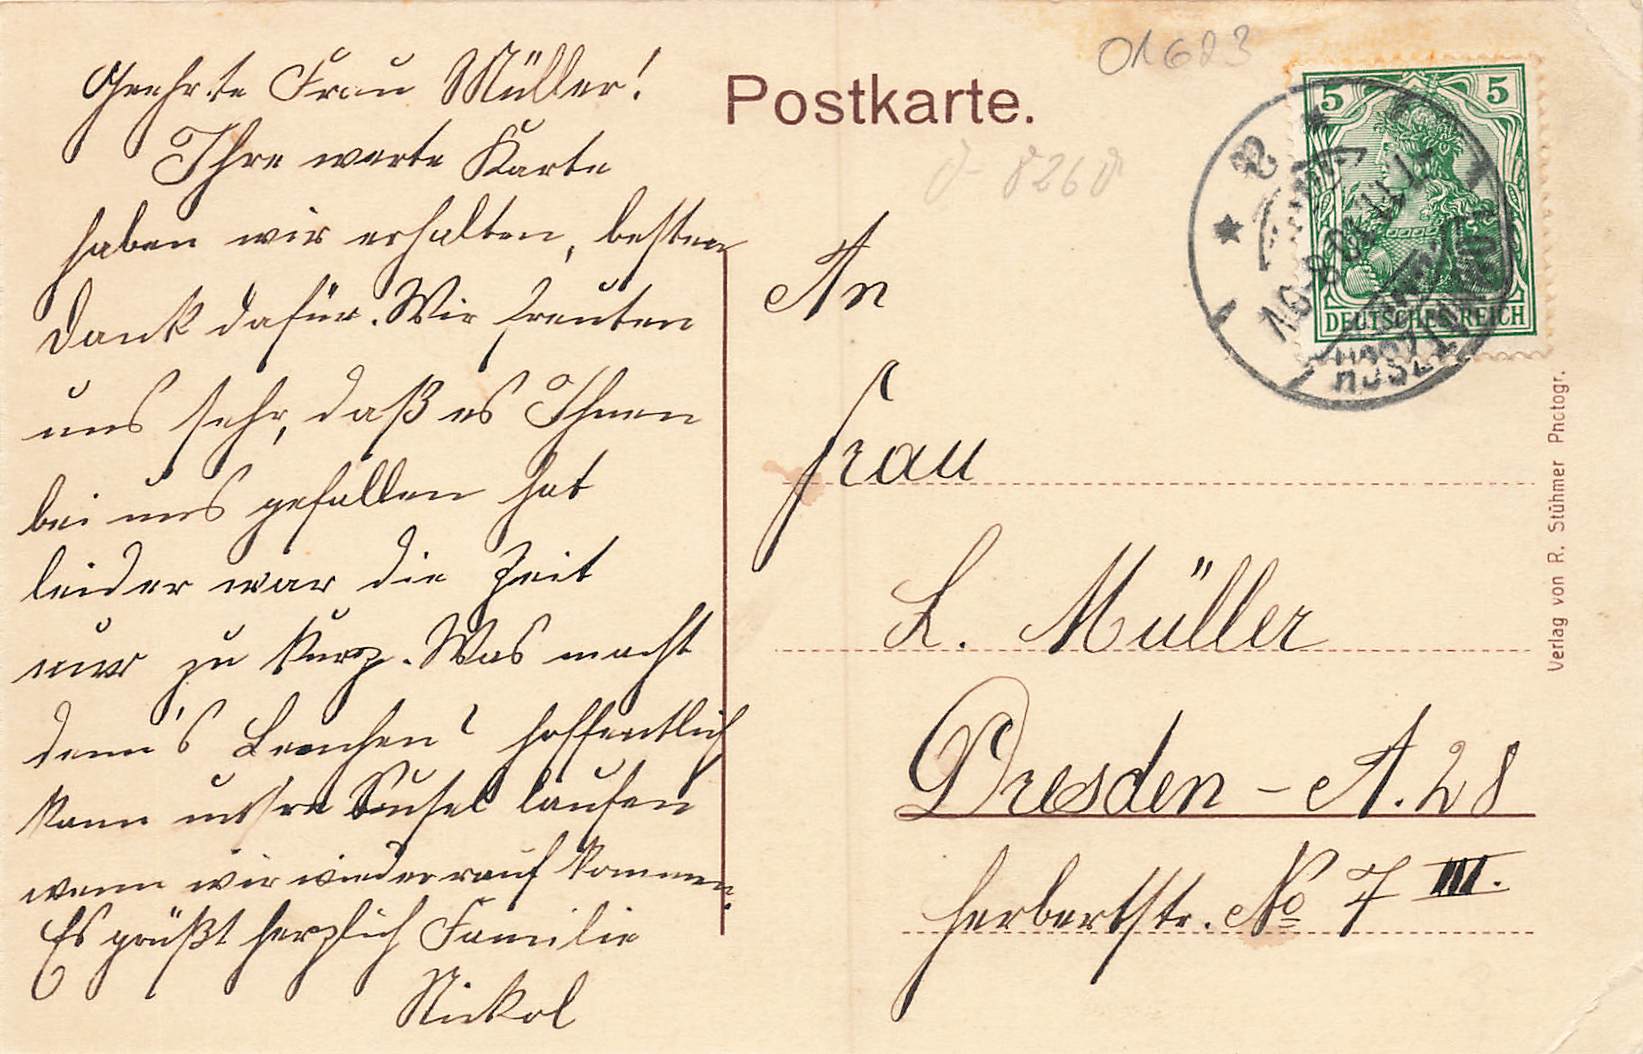 Geehrte Frau Müller!
Ihre werte Karte
haben wir erhalten, besten
Dank dafür. Wir freuten
uns sehr, daß es Ihnen
bei uns gefallen hat
leider war die Zeit
nur zu kurz. Was macht
denn's Lenchen? hoffentlich
kann unsre Susel laufen
wenn wir wieder rauf kommen.
Es grüßt herzlich Familie
Nickol
Postkarte.
01623
8260
5 5
DEUTSCHES REICH
An
Frau
L. Müller
Dresden - A. 28
Herbertstr. No 7 III.
Verlag von R. Stühmer Photogr.